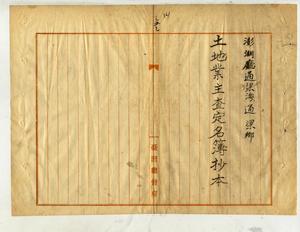 澎湖廳通梁澳通梁鄉
土地業主查定名簿抄本
臺灣總督府